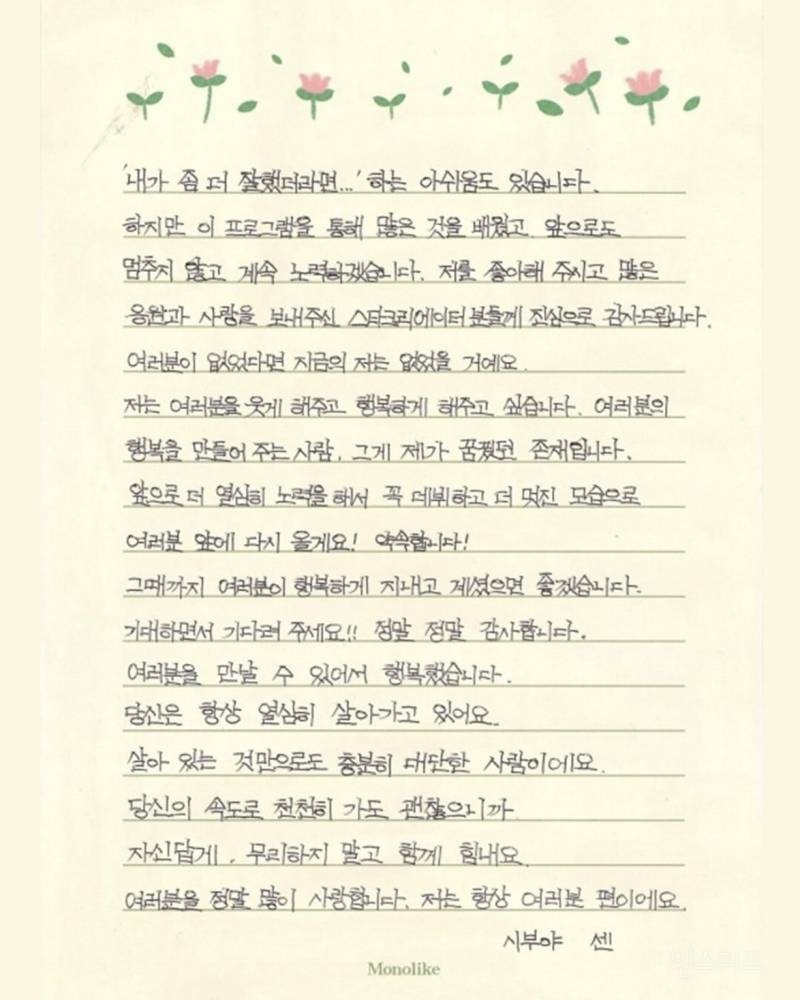 '내가 좀 더 잘했더라면...' 하는 아쉬움도 있습니다.
하지만 이 프로그램을 통해 많은 것을 배웠고 앞으로도
멈추지 않고 계속 노력하겠습니다. 저를 좋아해 주시고 많은
응원과 사랑을 보내주신 스타크리에이터분들께 진심으로 감사드립니다.
여러분이 없었다면 지금의 저는 없었을 거예요.
저는 여러분을 웃게 해주고 행복하게 해주고 싶습니다. 여러분의
행복을 만들어 주는 사람, 그게 제가 꿈꿨던 존재입니다.
앞으로 더 열심히 노력을 해서 꼭 데뷔하고 더 멋진 모습으로
여러분 앞에 다시 올게요! 약속합니다!
그때까지 여러분이 행복하게 지내고 계셨으면 좋겠습니다.
기대하면서 기다려 주세요!! 정말 정말 감사합니다.
여러분을 만날 수 있어서 행복했습니다.
당신은 항상 열심히 살아가고 있어요.
살아 있는 것만으로도 충분히 대단한 사람이에요.
당신의 속도로 천천히 가도 괜찮으니까
자신답게, 무리하지 말고 함께 힘내요.
여러분을 정말 많이 사랑합니다. 저는 항상 여러분 편이에요.
시부야 센
Monolike
인스티즈